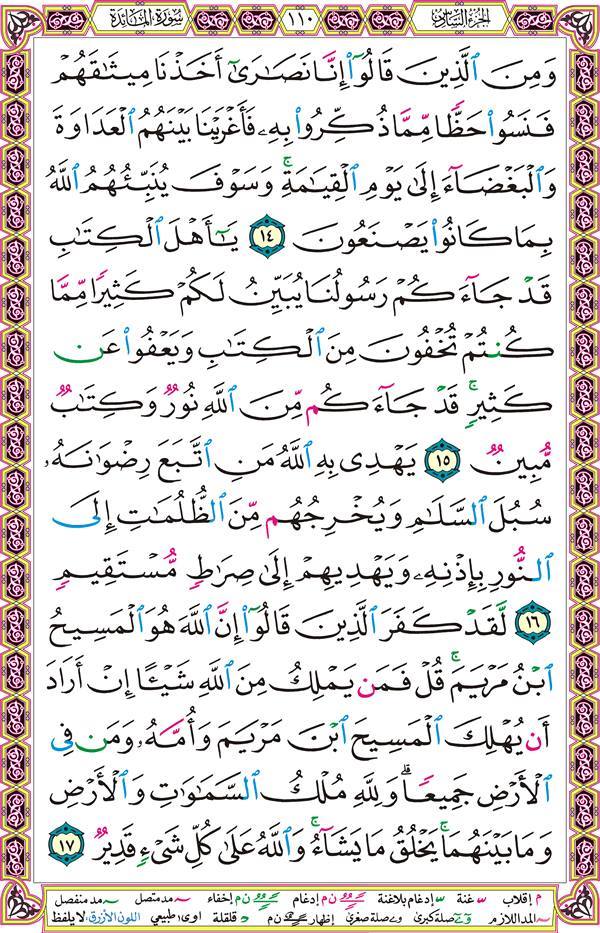 سورة المائدة ١١٠ الجزء السادس
وَمِنَ ٱلَّذِينَ قَالُوٓا۟ إِنَّا نَصَـٰرَىٰٓ أَخَذْنَا مِيثَـٰقَهُمْ
فَنَسُوا۟ حَظًّا مِّمَّا ذُكِّرُوا۟ بِهِۦ فَأَغْرَيْنَا بَيْنَهُمُ ٱلْعَدَاوَةَ
وَٱلْبَغْضَآءَ إِلَىٰ يَوْمِ ٱلْقِيَـٰمَةِ ۚ وَسَوْفَ يُنَبِّئُهُمُ ٱللَّهُ
بِمَا كَانُوا۟ يَصْنَعُونَ ١٤ يَـٰٓأَهْلَ ٱلْكِتَـٰبِ
قَدْ جَآءَكُمْ رَسُولُنَا يُبَيِّنُ لَكُمْ كَثِيرًا مِّمَّا
كُنتُمْ تُخْفُونَ مِنَ ٱلْكِتَـٰبِ وَيَعْفُوا۟ عَن
كَثِيرٍ ۚ قَدْ جَآءَكُم مِّنَ ٱللَّهِ نُورٌ وَكِتَـٰبٌ
مُّبِينٌ ١٥ يَهْدِى بِهِ ٱللَّهُ مَنِ ٱتَّبَعَ رِضْوَٰنَهُۥ
سُبُلَ ٱلسَّلَـٰمِ وَيُخْرِجُهُم مِّنَ ٱلظُّلُمَـٰتِ إِلَى
ٱلنُّورِ بِإِذْنِهِۦ وَيَهْدِيهِمْ إِلَىٰ صِرَٰطٍ مُّسْتَقِيمٍ
١٦ لَّقَدْ كَفَرَ ٱلَّذِينَ قَالُوٓا۟ إِنَّ ٱللَّهَ هُوَ ٱلْمَسِيحُ
ٱبْنُ مَرْيَمَ ۚ قُلْ فَمَن يَمْلِكُ مِنَ ٱللَّهِ شَيْـًٔا إِنْ أَرَادَ
أَن يُهْلِكَ ٱلْمَسِيحَ ٱبْنَ مَرْيَمَ وَأُمَّهُۥ وَمَن فِى
ٱلْأَرْضِ جَمِيعًا ۗ وَلِلَّهِ مُلْكُ ٱلسَّمَـٰوَٰتِ وَٱلْأَرْضِ
وَمَا بَيْنَهُمَا ۚ يَخْلُقُ مَا يَشَآءُ ۚ وَٱللَّهُ عَلَىٰ كُلِّ شَىْءٍ قَدِيرٌ ١٧
م إقلاب غنة إدغام بلاغنة ن م إدغام ن م إخفاء مد متصل مد منفصل
المد اللازم صلة كبرى صلة صغرى إظهار ن م قلقلة اوى طبيعي اللون الأزرق لا يلفظ